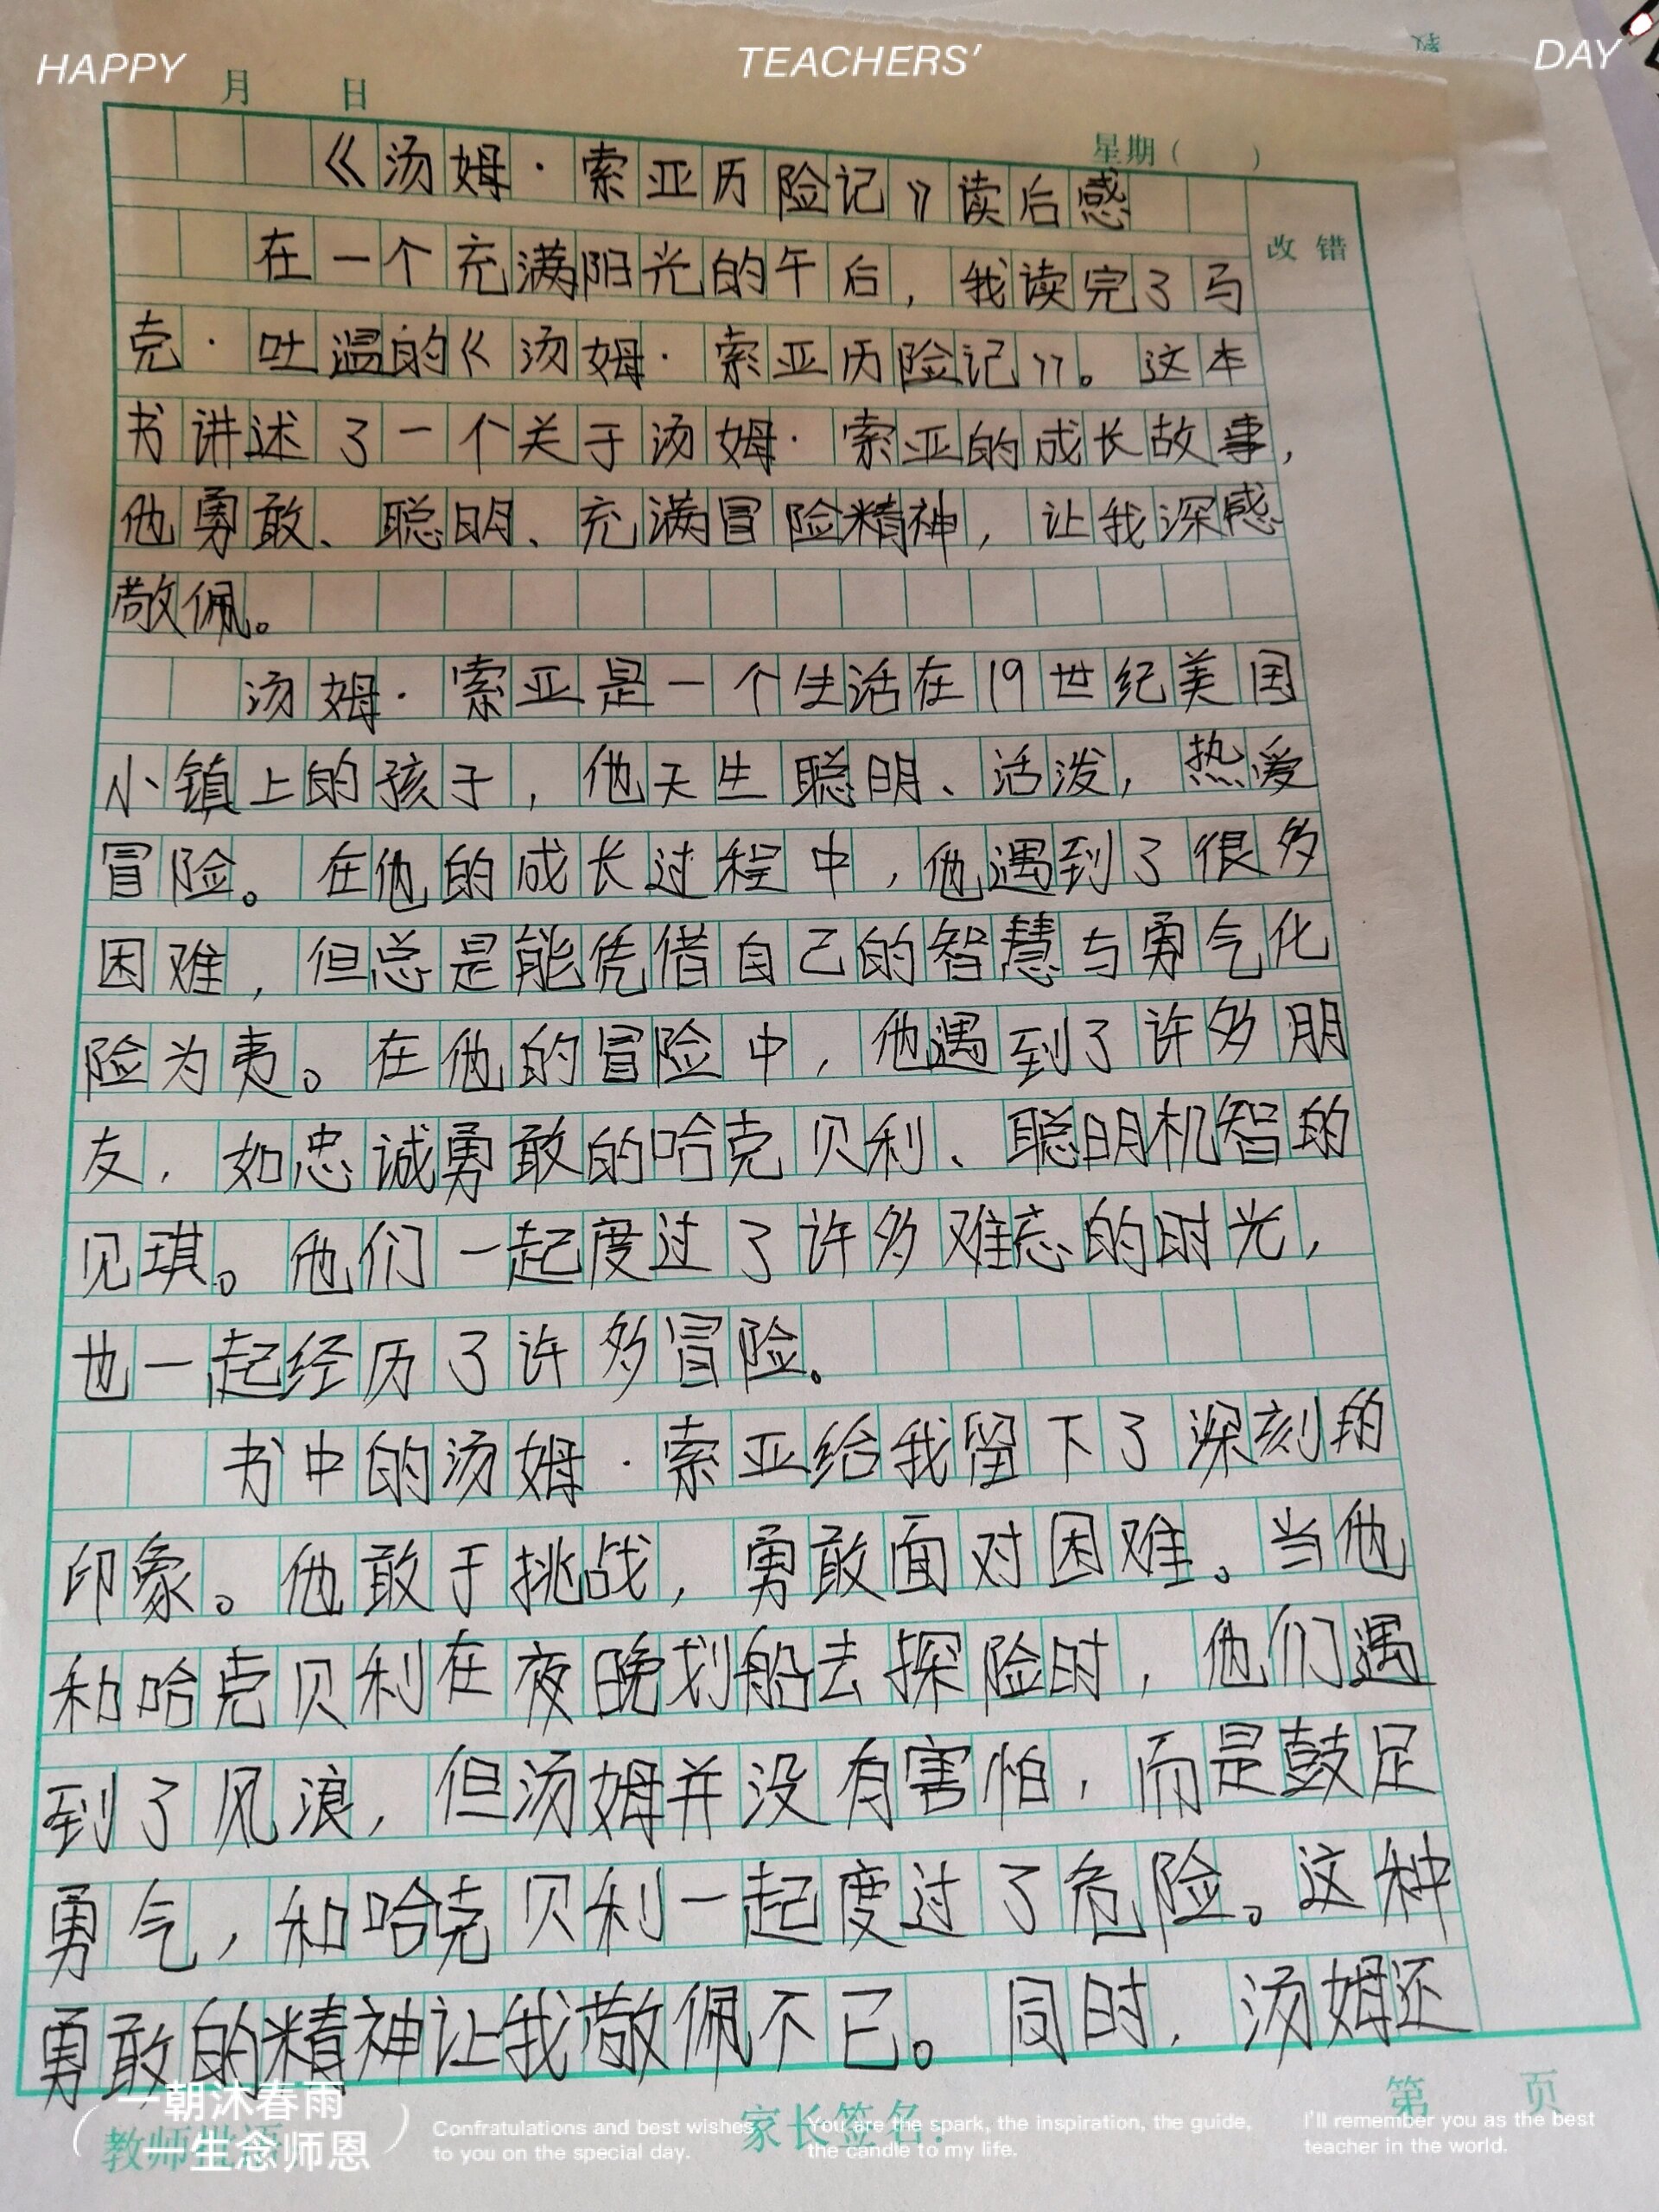 HAPPY TEACHERS' DAY
月 日
星期（ ）
《汤姆·索亚历险记》读后感
改错
在一个充满阳光的午后，我读完了马
克·吐温的《汤姆·索亚历险记》。这本
书讲述了一个关于汤姆·索亚的成长故事，
他勇敢、聪明、充满冒险精神，让我深感
敬佩。
汤姆·索亚是一个生活在19世纪美国
小镇上的孩子，他天生聪明、活泼，热爱
冒险。在他的成长过程中，他遇到了很多
困难，但总是能凭借自己的智慧与勇气化
险为夷。在他的冒险中，他遇到了许多朋
友，如忠诚勇敢的哈克贝利、聪明机智的
贝琪。他们一起度过了许多难忘的时光，
也一起经历了许多冒险。
书中的汤姆·索亚给我留下了深刻的
印象。他敢于挑战，勇敢面对困难。当他
和哈克贝利在夜晚划船去探险时，他们遇
到了风浪，但汤姆并没有害怕，而是鼓足
勇气，和哈克贝利一起度过了危险。这种
勇敢的精神让我敬佩不已。同时，汤姆还
第 页
教师批语
家长签名：
一朝沐春雨
一生念师恩
Confratulations and best wishes
to you on the special day.
You are the spark, the inspiration, the guide,
the candle to my life.
I'll remember you as the best
teacher in the world.